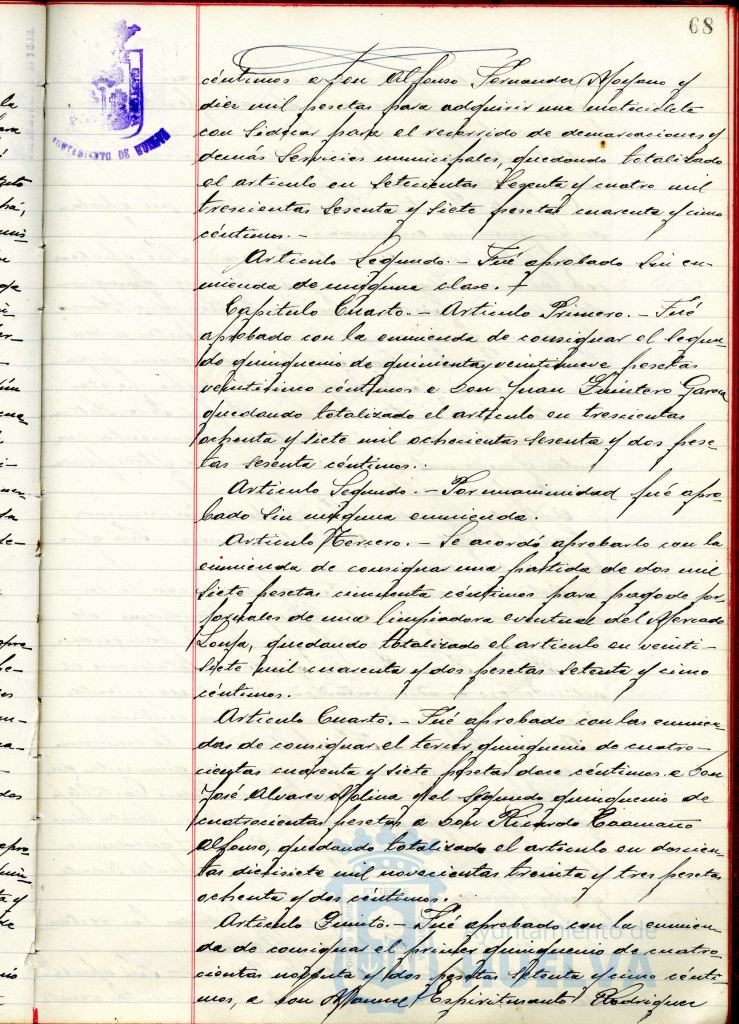 68
AYUNTAMIENTO DE HUELVA
céntimos a Don Alfonso Fernandez Moyano y
diez mil pesetas para adquirir una motocicleta
con Sidecar para el recorrido de demarcaciones y
demás Servicios municipales, quedando totalizado
el articulo en Setecientas Sesenta y cuatro mil
trescientas Sesenta y Siete pesetas cuarenta y cinco
céntimos.-
Articulo Segundo.- Fué aprobado Sin en-
mienda de ninguna clase.
Capitulo Cuarto.- Articulo Primero.- Fué
aprobado con la enmienda de consignar el Segun-
do quinquenio de quinientas veintinueve pesetas
veinticinco céntimos a Don Juan Quintero Garcia
quedando totalizado el articulo en trescientas
ochenta y siete mil ochocientas sesenta y dos pese-
tas sesenta céntimos.
Articulo Segundo.- Por unanimidad fué apro-
bado Sin ninguna enmienda.
Articulo Tercero.- Se acordó aprobarlo con la
enmienda de consignar una partida de dos mil
Siete pesetas cincuenta céntimos para pago de jor-
jornales de una limpiadora eventual del Mercado
Lonja, quedando totalizado el articulo en veinti-
siete mil cuarenta y dos pesetas setenta y cinco
céntimos.
Articulo Cuarto.- Fué aprobado con las enmien-
das de consignar el tercer quinquenio de cuatro-
cientas cuarenta y siete pesetas doce céntimos a Don
José Alvarez Molina y el Segundo quinquenio de
cuatrocientas pesetas a Don Ricardo Caamaño
Alfonso, quedando totalizado el articulo en doscien-
tas diecisiete mil novecientas treinta y tres pesetas
ochenta y dos céntimos.
Articulo Quinto.- Fué aprobado con la enmien-
da de consignar el primer quinquenio de cuatro-
cientas noventa y dos pesetas setenta y cinco cénti-
mos, a Don Manuel Espiritusanto Rodriguez
Ayuntamiento de
HUELVA